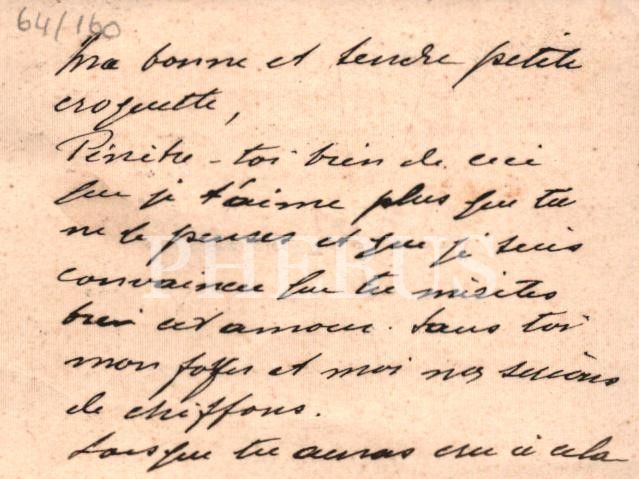 64/160
Ma bonne et tendre petite
croquette,
Pénètre-toi bien de ceci
que je t'aime plus que tu
ne le penses et que je suis
convaincu que tu mérites
bien cet amour. Sans toi
mon foyer et moi nos serions
de chiffons.
Lorsque tu auras cru à cela
PHEBUS